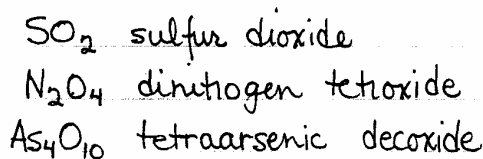 SO₂ sulfur dioxide
N₂O₄ dinitrogen tetroxide
As₄O₁₀ tetraarsenic decoxide